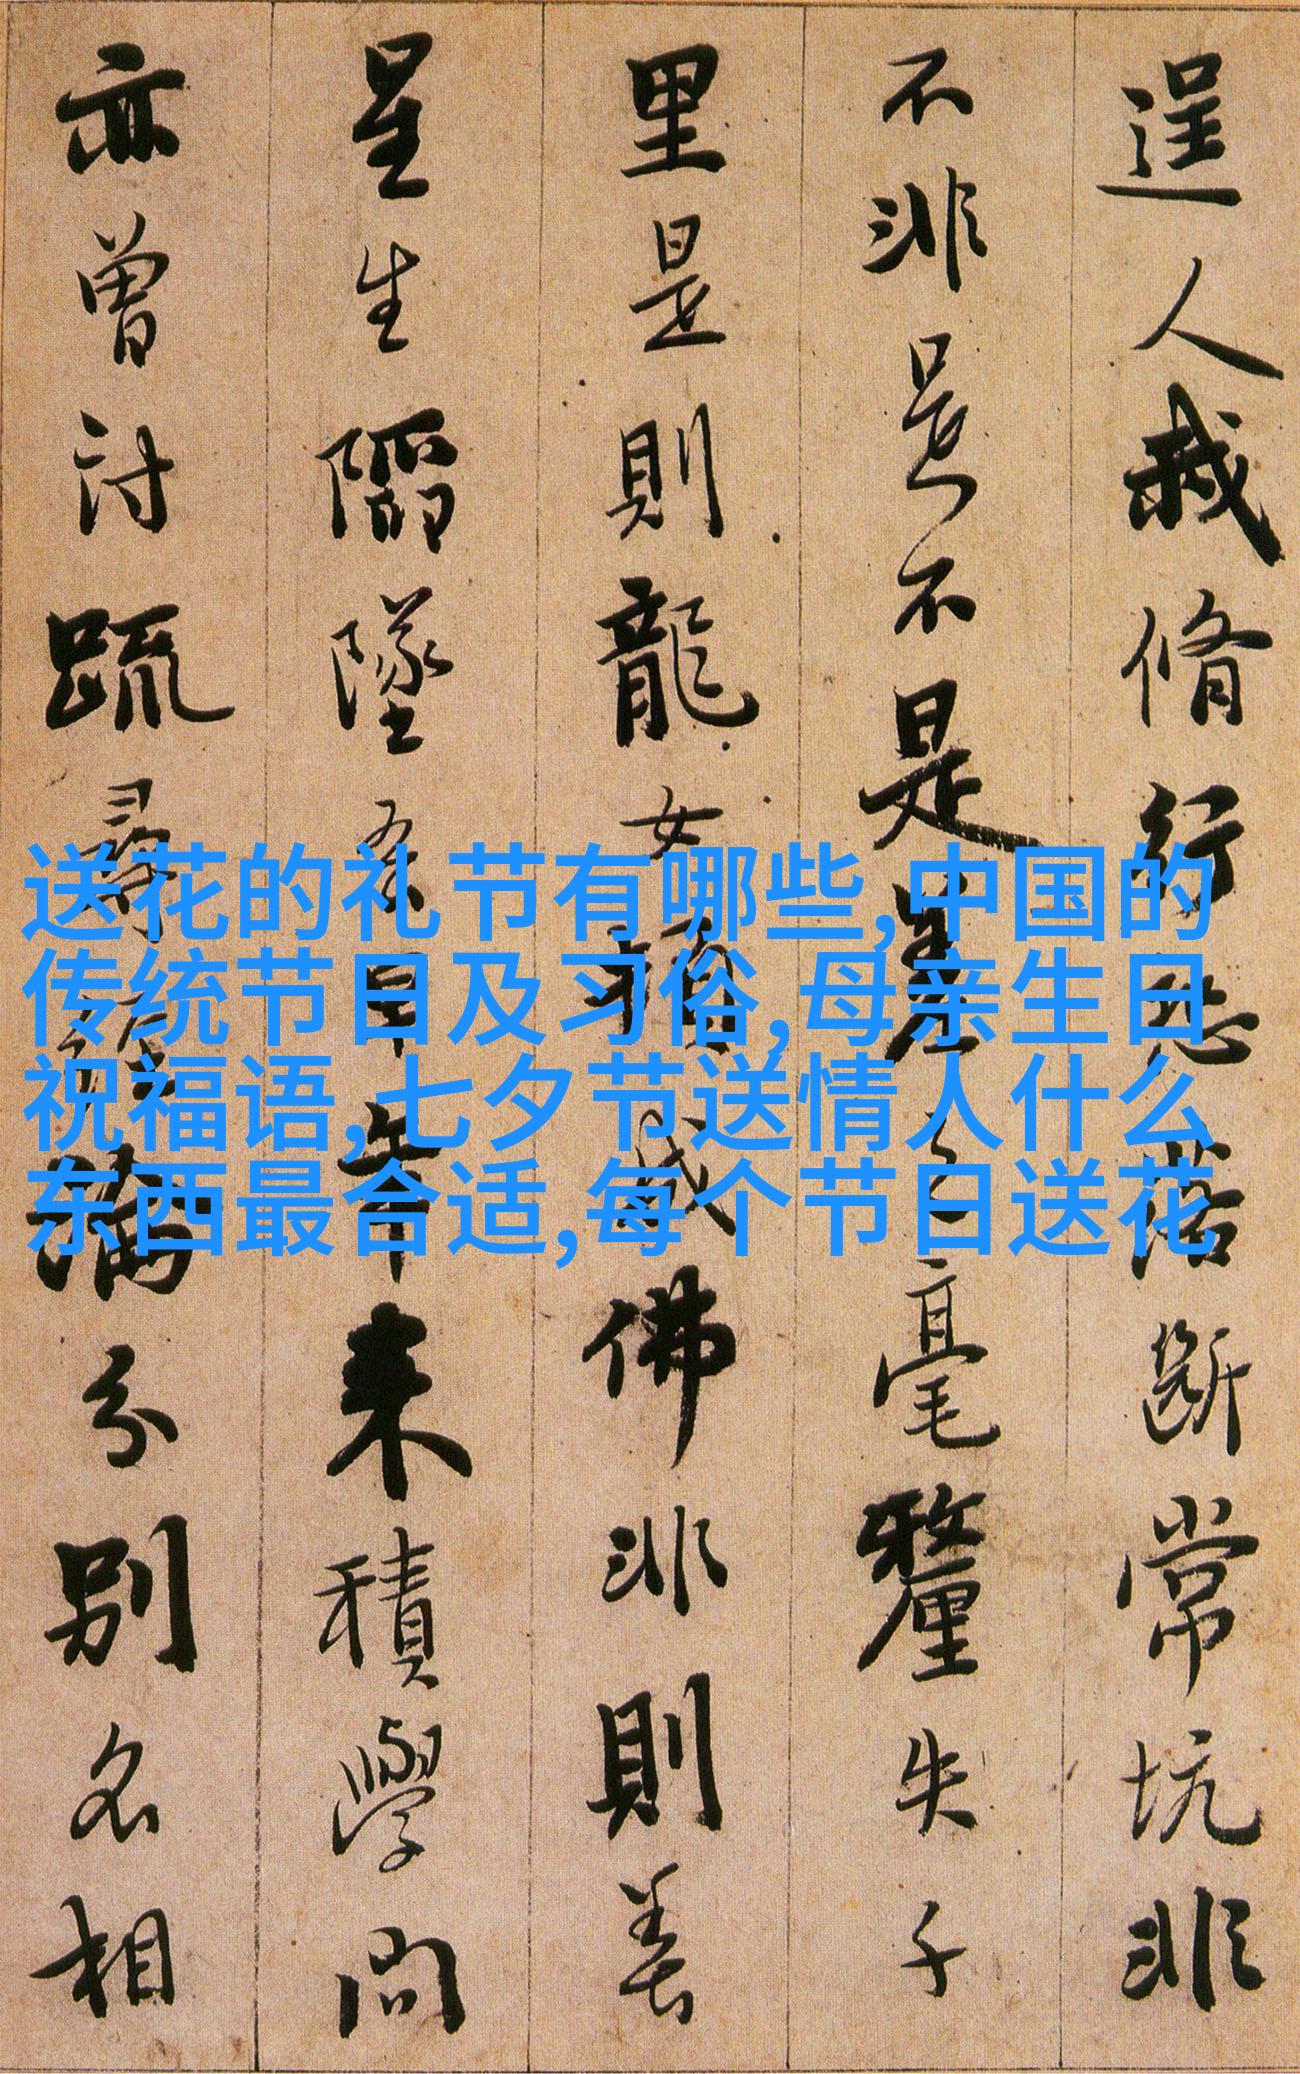 逞人我脩行恐落斷常坑非
不非是不是差之毫釐失千
里是則龍女頓成佛非則善
星生陷墜吾早年来積學問
亦曾討疏尋經論分别名相
送花的礼节有哪些,中国的
传统节日及习俗,母亲生日
祝福语,七夕节送情人什么
东西最合适,每个节日送花